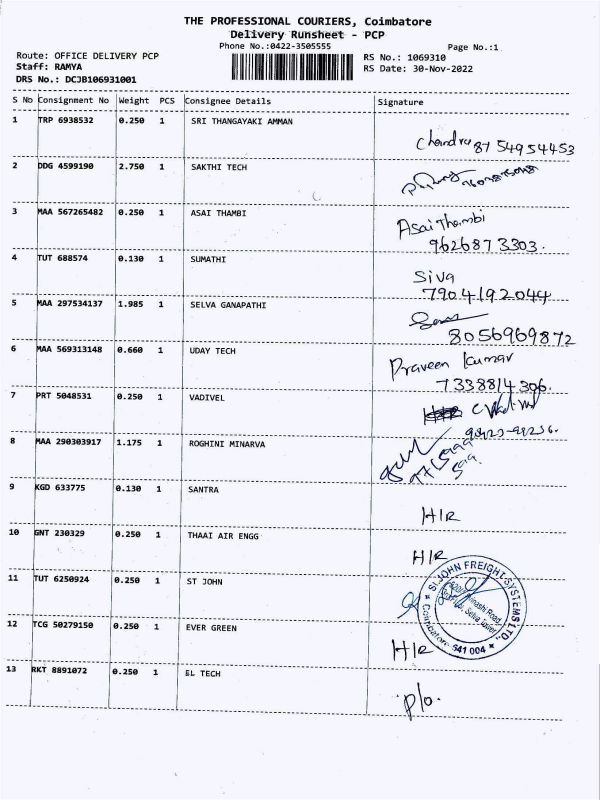 THE PROFESSIONAL COURIERS, Coimbatore
Delivery Runsheet - PCP
Phone No.:0422-3505555
Page No.:1
Route: OFFICE DELIVERY PCP
Staff: RAMYA
DRS No.: DCJB106931001
RS No.: 1069310
RS Date: 30-Nov-2022
S No Consignment No Weight PCS Consignee Details Signature
1 TRP 6938532 0.250 1 SRI THANGAYAKI AMMAN
Chandru 87 54954453
2 DDG 4599190 2.750 1 SAKTHI TECH
3 MAA 567265482 0.250 1 ASAI THAMBI
Asai Thambi
9626873303.
4 TUT 688574 0.130 1 SUMATHI
Siva
7904192044
5 MAA 297534137 1.985 1 SELVA GANAPATHI
8056969872
6 MAA 569313148 0.660 1 UDAY TECH
Praveen kumar
7338814306.
7 PRT 5048531 0.250 1 VADIVEL
8 MAA 290303917 1.175 1 ROGHINI MINARVA
9 KGD 633775 0.130 1 SANTRA
H/R
10 GNT 230329 0.250 1 THAAI AIR ENGG
H/R
11 TUT 6250924 0.250 1 ST JOHN
ST.JOHN FREIGHT SYSTEMS LTD.,
Coimbatore- 641 004
12 TCG 50279150 0.250 1 EVER GREEN
H/R
13 RKT 8891072 0.250 1 EL TECH
p/o.